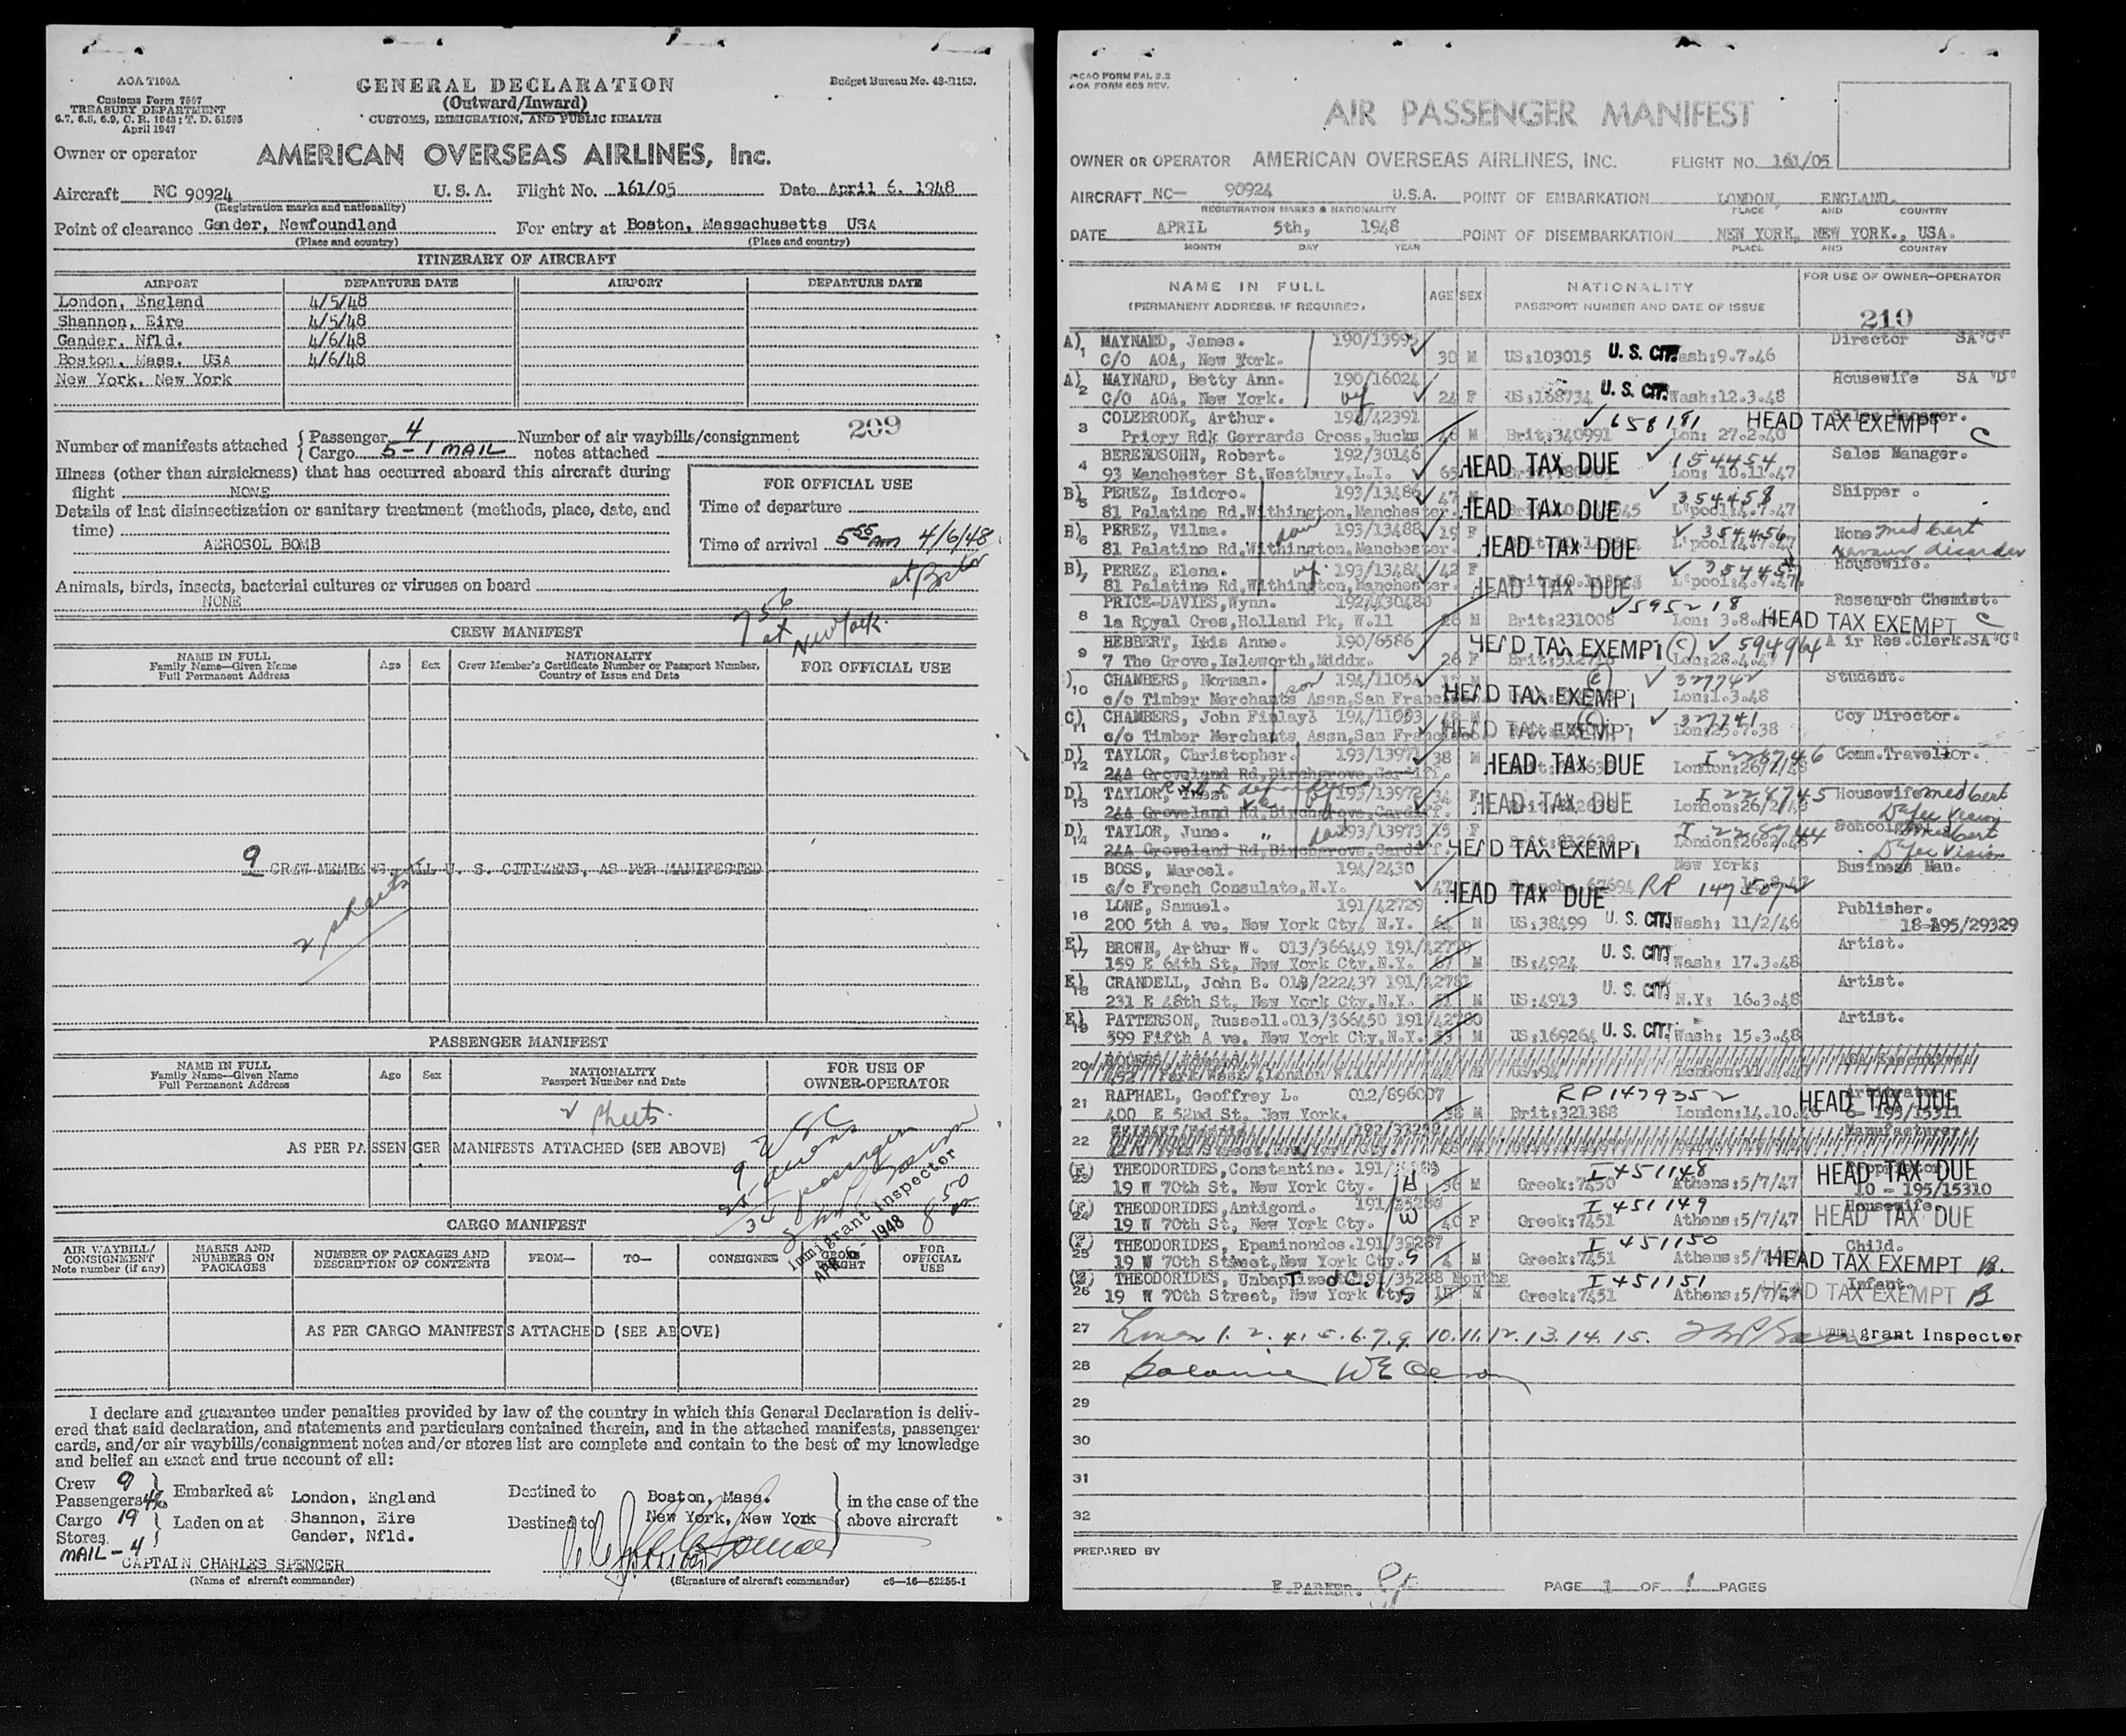 AOA T100A
Customs Form 7507
TREASURY DEPARTMENT
6.7, 6.8, 6.9, C. R. 1943; T. D. 51595
April 1947
GENERAL DECLARATION
(Outward/Inward)
CUSTOMS, IMMIGRATION, AND PUBLIC HEALTH
Budget Bureau No. 48-R153.
Owner or operator AMERICAN OVERSEAS AIRLINES, Inc.
Aircraft NC 90924 U. S. A. Flight No. 161/05 Date April 6, 1948
(Registration marks and nationality)
Point of clearance Gander, Newfoundland For entry at Boston, Massachusetts USA
(Place and country) (Place and country)
ITINERARY OF AIRCRAFT
AIRPORT DEPARTURE DATE AIRPORT DEPARTURE DATE
London, England 4/5/48
Shannon, Eire 4/5/48
Gander, Nfld. 4/6/48
Boston, Mass. USA 4/6/48
New York, New York
209
Number of manifests attached { Passenger 4 Number of air waybills/consignment
Cargo 5 - 1 MAIL notes attached
Illness (other than airsickness) that has occurred aboard this aircraft during
flight NONE
Details of last disinsectization or sanitary treatment (methods, place, date, and
time)
AEROSOL BOMB
FOR OFFICIAL USE
Time of departure
Time of arrival 5 55 AM 4/6/48
at
Animals, birds, insects, bacterial cultures or viruses on board
NONE
7 56
at New York.
CREW MANIFEST
NAME IN FULL
Family Name—Given Name
Full Permanent Address
Age Sex
NATIONALITY
Crew Member's Certificate Number or Passport Number,
Country of Issue and Date
FOR OFFICIAL USE
9 CREW MEMBERS, ALL U. S. CITIZENS, AS PER MANIFESTED
2 sheets
PASSENGER MANIFEST
NAME IN FULL
Family Name—Given Name
Full Permanent Address
Age Sex
NATIONALITY
Passport Number and Date
FOR USE OF
OWNER-OPERATOR
2 sheets.
AS PER PASSENGER MANIFESTS ATTACHED (SEE ABOVE)
9 USC
25 aliens
34 passengers
Immigrant Inspector
APR 6 - 1948
8 50
CARGO MANIFEST
AIR WAYBILL/
CONSIGNMENT
Note number (if any)
MARKS AND
NUMBERS ON
PACKAGES
NUMBER OF PACKAGES AND
DESCRIPTION OF CONTENTS
FROM— TO— CONSIGNEE
GROSS
WEIGHT
FOR
OFFICIAL
USE
AS PER CARGO MANIFESTS ATTACHED (SEE ABOVE)
I declare and guarantee under penalties provided by law of the country in which this General Declaration is deliv-
ered that said declaration, and statements and particulars contained therein, and in the attached manifests, passenger
cards, and/or air waybills/consignment notes and/or stores list are complete and contain to the best of my knowledge
and belief an exact and true account of all:
Crew 9
Passengers
Cargo 19
Stores
MAIL - 4
Embarked at
Laden on at
London, England
Shannon, Eire
Gander, Nfld.
Destined to Boston, Mass.
Destined to New York, New York
in the case of the
above aircraft
CAPTAIN CHARLES SPENCER
(Name of aircraft commander) (Signature of aircraft commander) c6—16—52255-1
ICAO FORM FAL 3.2
AOA FORM 603 REV.
AIR PASSENGER MANIFEST
OWNER OR OPERATOR AMERICAN OVERSEAS AIRLINES, INC. FLIGHT NO. 161/05
AIRCRAFT NC— 90924 U.S.A. POINT OF EMBARKATION LONDON, ENGLAND.
REGISTRATION MARKS & NATIONALITY PLACE AND COUNTRY
DATE APRIL 5th, 1948 POINT OF DISEMBARKATION NEW YORK, NEW YORK., USA.
MONTH DAY YEAR PLACE AND COUNTRY
NAME IN FULL
(PERMANENT ADDRESS, IF REQUIRED)
AGE SEX
NATIONALITY
PASSPORT NUMBER AND DATE OF ISSUE
FOR USE OF OWNER-OPERATOR
210
A) 1 MAYNARD, James. 190/13995 Director SA"C"
C/O AOA, New York. 30 M US:103015 U. S. CIT. Wash:9.7.46
A) 2 MAYNARD, Betty Ann. 190/16024 Housewife SA "D"
C/O AOA, New York. wf 24 F US:168734 U. S. CIT. Wash:12.3.48
3 COLEBROOK, Arthur. 658181 HEAD TAX EXEMPT C
Priory Rd, Gerrards Cross, Bucks M Brit:340991 Lon: 27.2.40
4 BERENDSOHN, Robert. 192/30146 HEAD TAX DUE 154454 Sales Manager.
93 Manchester St, Westbury, L.I. 65 Lon: 10.11.47
B) 5 PEREZ, Isidoro. 193/13486 47 M HEAD TAX DUE 354458 Shipper.
81 Palatine Rd, Withington, Manchester. L'pool:4.7.47
B) 6 PEREZ, Vilma. dau 193/13488 19 F HEAD TAX DUE 354456 None med cert
81 Palatine Rd, Withington, Manchester.
B) 7 PEREZ, Elena. wf. 193/13484 42 F HEAD TAX DUE Housewife.
81 Palatine Rd, Withington, Manchester. L'pool:4.7.47
8 PRICE-DAVIES, Wynn. 595218 Research Chemist.
1a Royal Cres, Holland Pk, W.11 M Brit:231008 HEAD TAX EXEMPT C
9 HEBBERT, Iris Anne. 190/6586 HEAD TAX EXEMPT (C) 594964 Air Res. Clerk. SA"C"
7 The Grove, Isleworth, Middx. 26 F Lon:28.4.47
10 CHAMBERS, Norman. son 194/11054 327742 Student.
c/o Timber Merchants Assn, San Francisco. HEAD TAX EXEMPT Lon:1.3.48
C) 11 CHAMBERS, John Finlay. 194/11053 M 327741 Coy Director.
c/o Timber Merchants Assn, San Francisco. HEAD TAX EXEMPT
D) 12 TAYLOR, Christopher. 193/13971 38 M HEAD TAX DUE Comm. Traveller.
24A Groveland Rd, Birchgrove, Cardiff.
D) 13 TAYLOR, 193/13972 34 F HEAD TAX DUE I 228745 Housewife med cert
24A Groveland Rd, Birchgrove, Cardiff. London:26/2/48 Defec Vision
D) 14 TAYLOR, June. " dau 193/13973 15 F I 228744 med cert
24A Groveland Rd, Birchgrove, Cardiff. HEAD TAX EXEMPT Defec Vision
15 BOSS, Marcel. 194/2430 New York: Business Man.
c/o French Consulate, N.Y. 47 HEAD TAX DUE 67694 RP
16 LOWE, Samuel. 191/42729 Publisher.
200 5th Ave, New York Cty, N.Y. M US:38499 U. S. CIT. Wash: 11/2/46 18-195/29329
E) 17 BROWN, Arthur W. 013/366449 191/42779 U. S. CIT. Artist.
159 E 64th St, New York Cty, N.Y. 67 M US:4924 Wash: 17.3.48
E) 18 CRANDELL, John B. 013/222437 191/42781 U. S. CIT. Artist.
231 E 48th St, New York Cty, N.Y. 51 M US:4913 N.Y: 16.3.48
E) 19 PATTERSON, Russell. 013/366450 191/42780 Artist.
599 Fifth Ave, New York Cty, N.Y. 53 M US:169264 U. S. CIT. Wash: 15.3.48
20
21 RAPHAEL, Geoffrey L. 012/896007 RP 1479352 HEAD TAX DUE
400 E 52nd St. New York. 38 M Brit:321388 London:14.10.46 6 - 195/15311
22
(F) 23 THEODORIDES, Constantine. I 451148 HEAD TAX DUE
19 W 70th St. New York Cty. H 36 M Greek:7450 Athens:5/7/47 10 - 195/15310
(F) 24 THEODORIDES, Antigoni. 191/35286 I 451149 Housewife.
19 W 70th St, New York Cty. W 40 F Greek:7451 Athens:5/7/47 HEAD TAX DUE
(F) 25 THEODORIDES, Epaminondos. 191/35287 I 451150 Child.
19 W 70th Street, New York Cty. S 4 M Greek:7451 HEAD TAX EXEMPT B.
26 THEODORIDES, Unbaptized 191/35288 Months I 451151 Infant.
19 W 70th Street, New York Cty. S M Greek:7451 Athens:5/7/47 HEAD TAX EXEMPT B
27 Lines 1. 2. 4. 5. 6. 7. 9. 10. 11. 12. 13. 14. 15. Immigrant Inspector
28 Balance
29
30
31
32
PREPARED BY
E. PARKER. PAGE 1 OF 1 PAGES